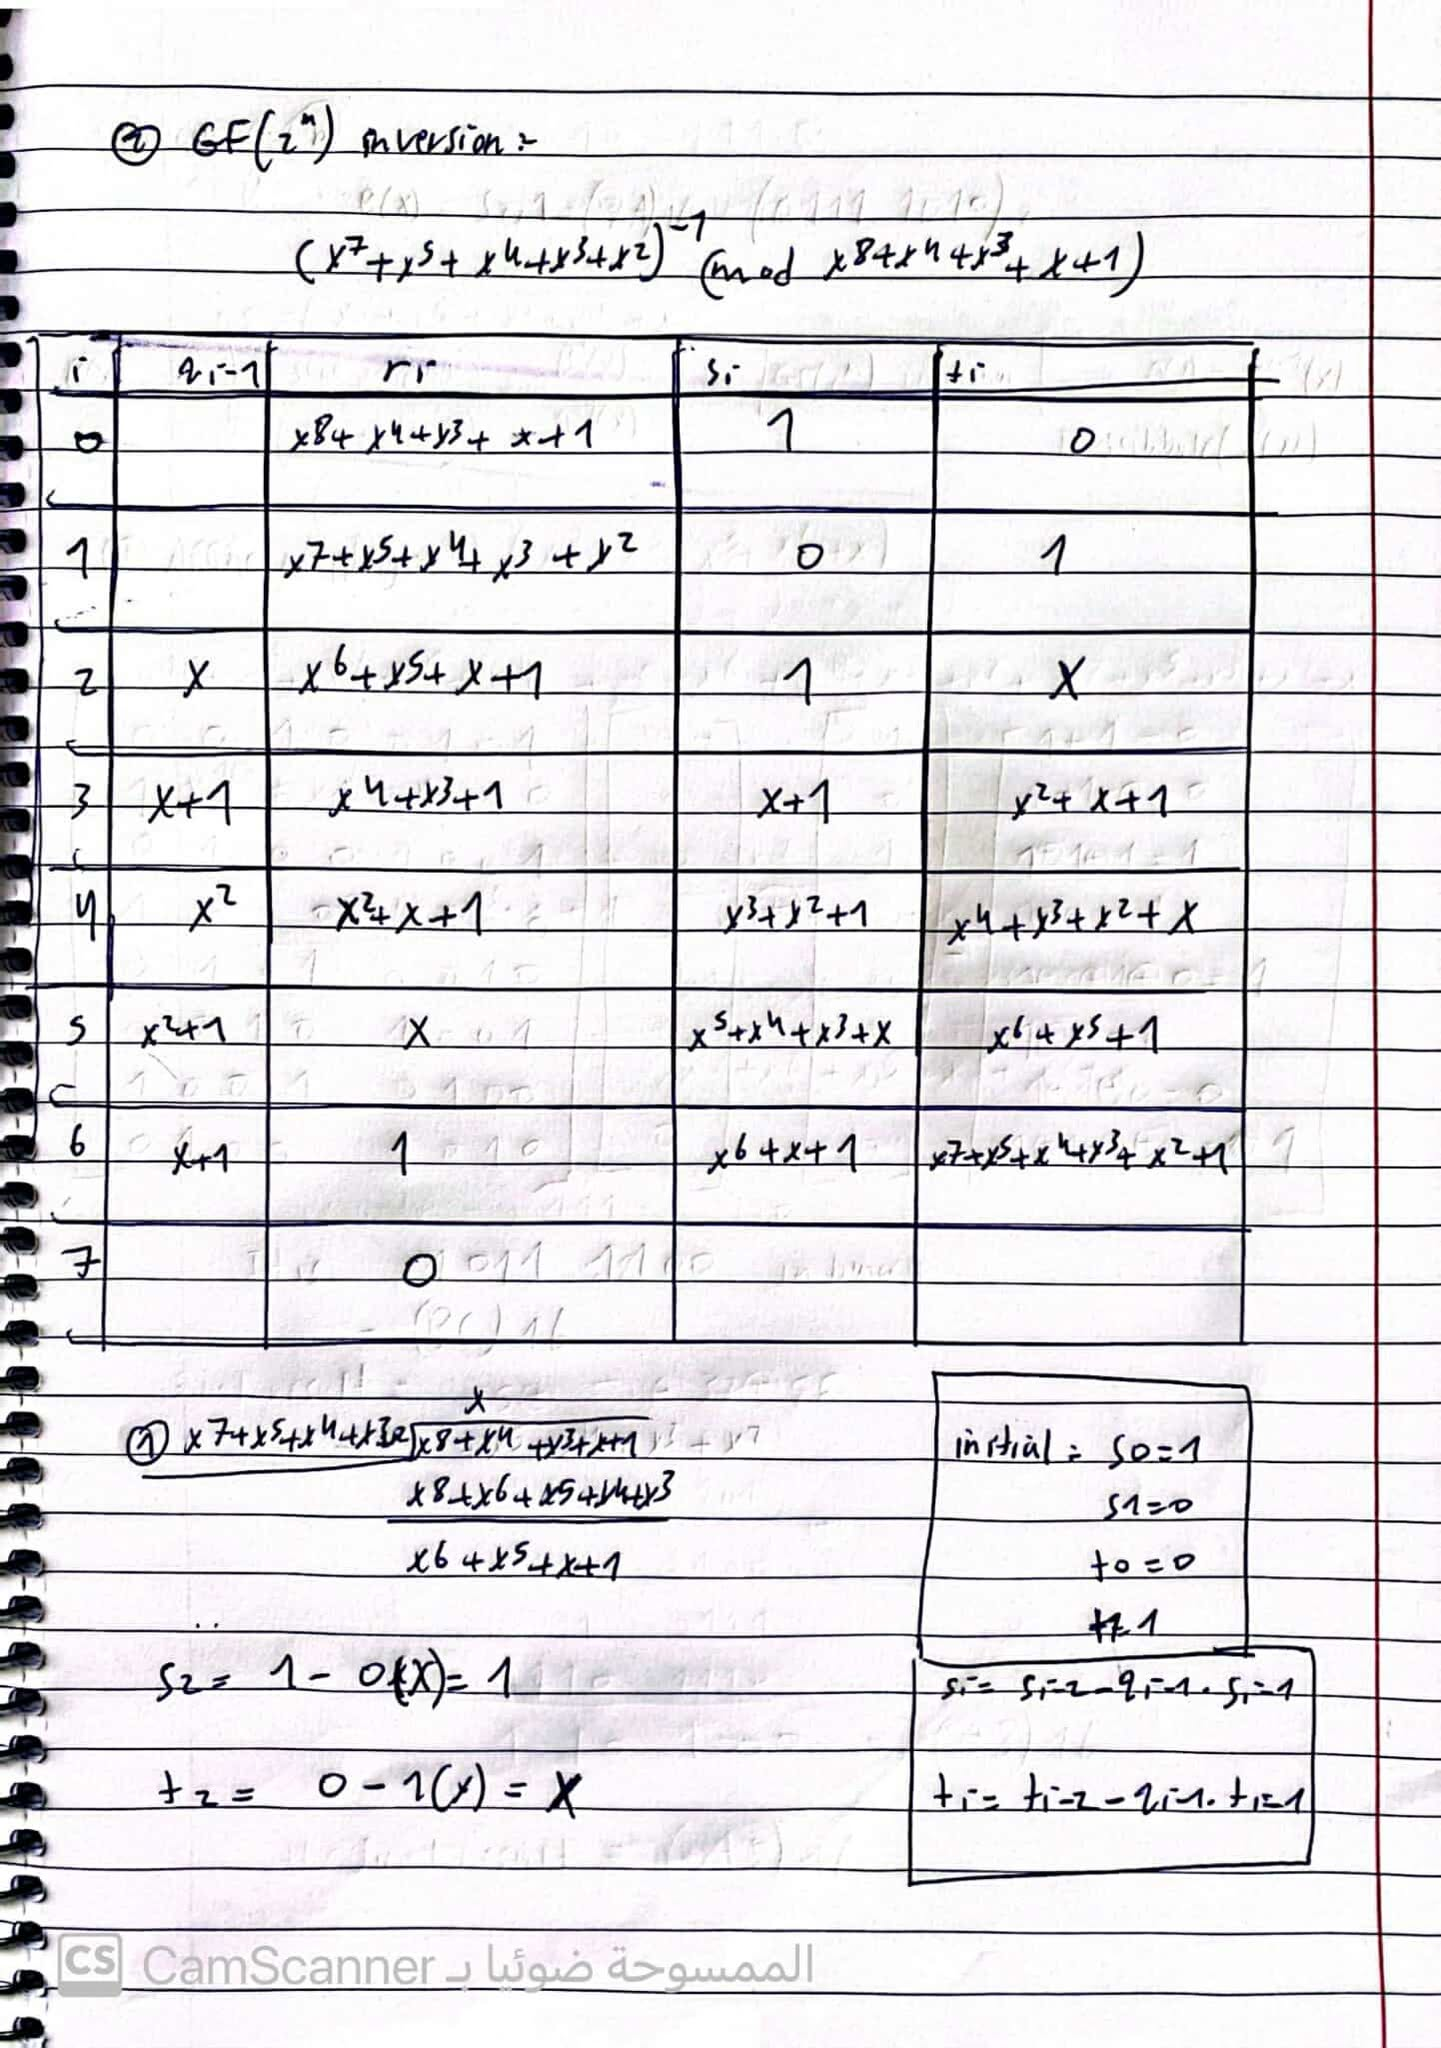 ② GF(2ⁿ) inversion:
(x⁷+x⁵+x⁴+x³+x²)⁻¹ (mod x⁸+x⁴+x³+x+1)
i qi-1 ri si ti
0 x8+x4+x3+x+1 1 0
1 x7+x5+x4+x3+x2 0 1
2 x x6+x5+x+1 1 x
3 x+1 x4+x3+1 x+1 x²+x+1
4 x² x²+x+1 x3+x2+1 x4+x3+x2+x
5 x²+1 x x5+x4+x3+x x6+x5+1
6 x+1 1 x6+x+1 x7+x5+x4+x3+x2+1
7 0
x
① x7+x5+x4+x3+x2 x8+x4+x3+x+1
x8+x6+x5+x4+x3
x6+x5+x+1
s2= 1-0(x)= 1
t2= 0-1(x) = x
initial: s0=1
s1=0
t0=0
t1=1
si= si-2-qi-1.si-1
ti= ti-2-qi-1.ti-1
CS CamScanner الممسوحة ضوئيا بـ